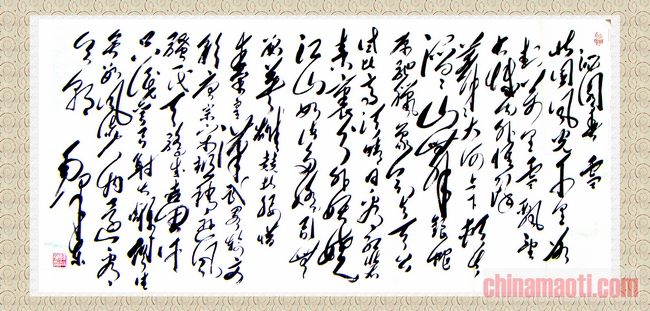 沁园春 雪
北国风光千里冰
封万里雪飘望
长城内外惟余
莽莽大河上下顿失
滔滔山舞银蛇
原驰蜡象欲与天公
试比高须晴日看红装
素裹分外妖娆
江山如此多娇引无
数英雄竞折腰惜
秦皇汉武略输文
采唐宗宋祖稍逊风
骚一代天骄成吉思汗
只识弯弓射大雕俱往
矣数风流人物还看
今朝
毛泽东
chinamaoti.com